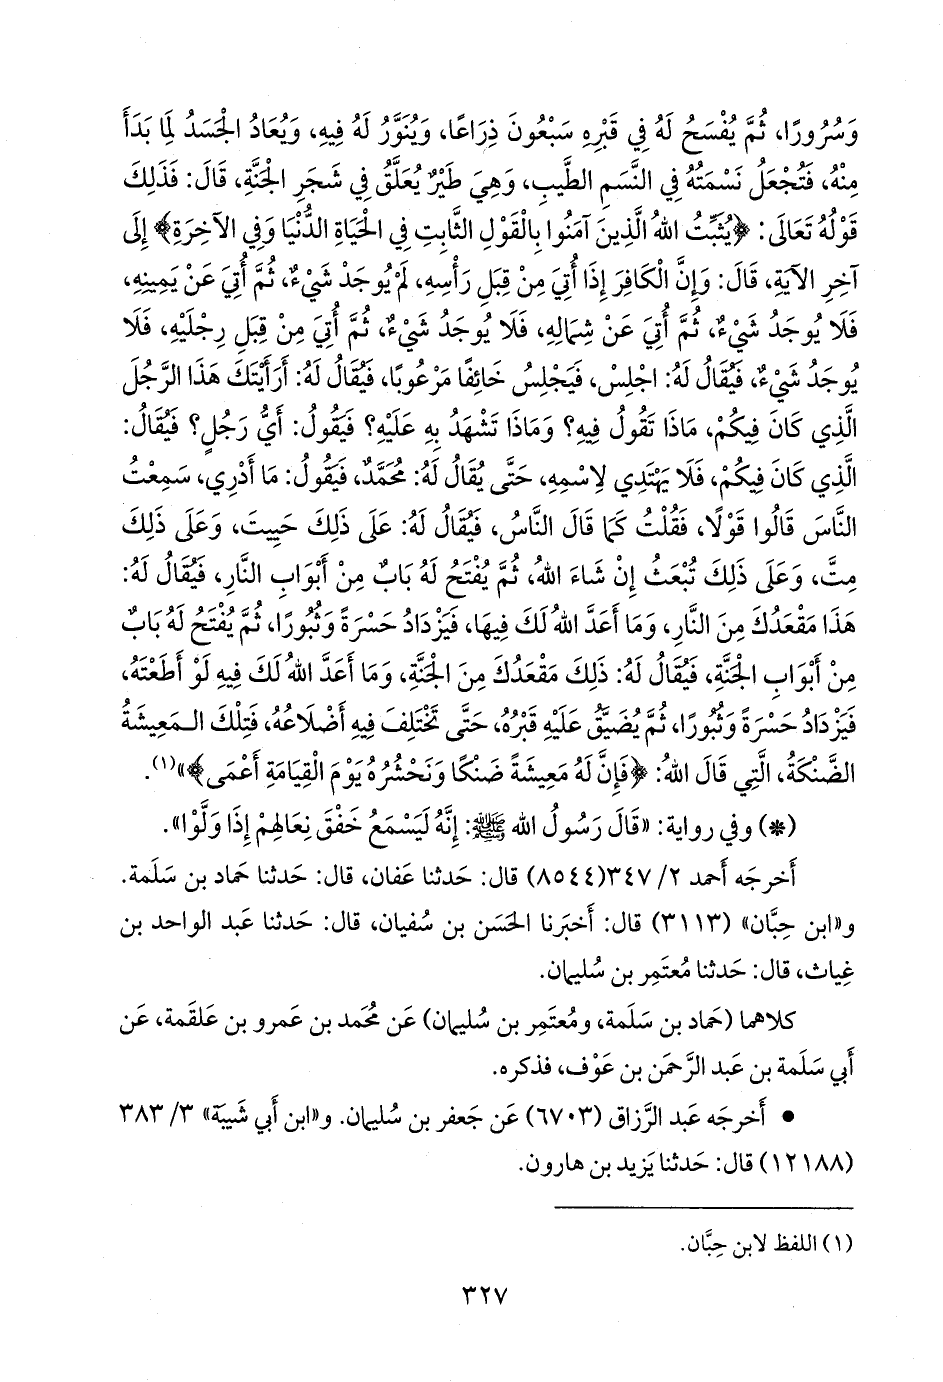 وَسُرُورًا، ثُمَّ يُفْسَحُ لَهُ فِي قَبْرِهِ سَبْعُونَ ذِرَاعًا، وَيُنَوَّرُ لَهُ فِيهِ، وَيُعَادُ الْجَسَدُ لِمَا بَدَأَ
مِنْهُ، فَتُجْعَلُ نَسْمَتُهُ فِي النَّسَمِ الطَّيِّبِ، وَهِيَ طَيْرٌ يُعَلَّقُ فِي شَجَرِ الْجَنَّةِ، قَالَ: فَذَلِكَ
قَوْلُهُ تَعَالَى: ﴿يُثَبِّتُ اللهُ الَّذِينَ آمَنُوا بِالْقَوْلِ الثَّابِتِ فِي الْحَيَاةِ الدُّنْيَا وَفِي الآخِرَةِ﴾ إِلَى
آخِرِ الآيَةِ، قَالَ: وَإِنَّ الْكَافِرَ إِذَا أُتِيَ مِنْ قِبَلِ رَأْسِهِ، لَمْ يُوجَدْ شَيْءٌ، ثُمَّ أُتِيَ عَنْ يَمِينِهِ،
فَلَا يُوجَدُ شَيْءٌ، ثُمَّ أُتِيَ عَنْ شِمَالِهِ، فَلَا يُوجَدُ شَيْءٌ، ثُمَّ أُتِيَ مِنْ قِبَلِ رِجْلَيْهِ، فَلَا
يُوجَدُ شَيْءٌ، فَيُقَالُ لَهُ: اجْلِسْ، فَيَجْلِسُ خَائِفًا مَرْعُوبًا، فَيُقَالُ لَهُ: أَرَأَيْتَكَ هَذَا الرَّجُلَ
الَّذِي كَانَ فِيكُمْ، مَاذَا تَقُولُ فِيهِ؟ وَمَاذَا تَشْهَدُ بِهِ عَلَيْهِ؟ فَيَقُولُ: أَيُّ رَجُلٍ؟ فَيُقَالُ:
الَّذِي كَانَ فِيكُمْ، فَلَا يَهْتَدِي لِاسْمِهِ، حَتَّى يُقَالُ لَهُ: مُحَمَّدٌ، فَيَقُولُ: مَا أَدْرِي، سَمِعْتُ
النَّاسَ قَالُوا قَوْلًا، فَقُلْتُ كَمَا قَالَ النَّاسُ، فَيُقَالُ لَهُ: عَلَى ذَلِكَ حَيِيتَ، وَعَلَى ذَلِكَ
مِتَّ، وَعَلَى ذَلِكَ تُبْعَثُ إِنْ شَاءَ اللهُ، ثُمَّ يُفْتَحُ لَهُ بَابٌ مِنْ أَبْوَابِ النَّارِ، فَيُقَالُ لَهُ:
هَذَا مَقْعَدُكَ مِنَ النَّارِ، وَمَا أَعَدَّ اللهُ لَكَ فِيهَا، فَيَزْدَادُ حَسْرَةً وَثُبُورًا، ثُمَّ يُفْتَحُ لَهُ بَابٌ
مِنْ أَبْوَابِ الْجَنَّةِ، فَيُقَالُ لَهُ: ذَلِكَ مَقْعَدُكَ مِنَ الْجَنَّةِ، وَمَا أَعَدَّ اللهُ لَكَ فِيهِ لَوْ أَطَعْتَهُ،
فَيَزْدَادُ حَسْرَةً وَثُبُورًا، ثُمَّ يُضَيَّقُ عَلَيْهِ قَبْرُهُ، حَتَّى تَخْتَلِفَ فِيهِ أَضْلَاعُهُ، فَتِلْكَ الـمَعِيشَةُ
الضَّنْكَةُ، الَّتِي قَالَ اللهُ: ﴿فَإِنَّ لَهُ مَعِيشَةً ضَنْكًا وَنَحْشُرُهُ يَوْمَ الْقِيَامَةِ أَعْمَى﴾»(١).
(*) وفي رواية: «قَالَ رَسُولُ الله ﷺ: إِنَّهُ لَيَسْمَعُ خَفْقَ نِعَالِهِمْ إِذَا وَلَّوْا».
أَخرجَه أَحمد ٢/ ٣٤٧(٨٥٤٤) قال: حَدثنا عَفان، قال: حَدثنا حَماد بن سَلَمة.
و«ابن حِبَّان» (٣١١٣) قال: أَخبَرنا الحَسَن بن سُفيان، قال: حَدثنا عَبد الواحد بن
غِياث، قال: حَدثنا مُعتَمِر بن سُليمان.
كلاهما (حَماد بن سَلَمة، ومُعتَمِر بن سُليمان) عَن مُحَمد بن عَمرو بن عَلقَمة، عَن
أَبي سَلَمة بن عَبد الرَّحمَن بن عَوْف، فذكره.
• أَخرجَه عَبد الرَّزاق (٦٧٠٣) عَن جَعفر بن سُليمان. و«ابن أَبي شَيبَة» ٣/ ٣٨٣
(١٢١٨٨) قال: حَدثنا يَزيد بن هارون.
(١) اللفظ لابن حِبَّان.
٣٢٧